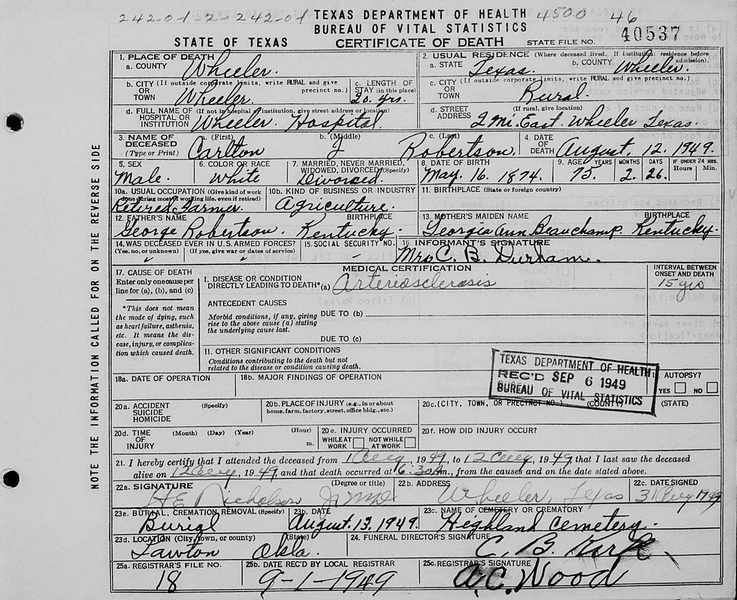 242-01 2-242-01 TEXAS DEPARTMENT OF HEALTH 4500 46
BUREAU OF VITAL STATISTICS 40537
STATE OF TEXAS CERTIFICATE OF DEATH STATE FILE NO.
1. PLACE OF DEATH 2. USUAL RESIDENCE (Where deceased lived. If institution: residence before admission)
a. COUNTY Wheeler. a. STATE Texas. b. COUNTY Wheeler.
b. CITY (If outside corporate limits, write RURAL and give precinct no.) OR TOWN Wheeler. c. LENGTH OF STAY (in this place) 20 yrs. c. CITY (If outside corporate limits, write RURAL and give precinct no.) OR TOWN Rural.
d. FULL NAME OF (If not in hospital or institution, give street address or location) HOSPITAL OR INSTITUTION Wheeler. Hospital. d. STREET ADDRESS (If rural, give location) 2 Mi. East. Wheeler Texas.
3. NAME OF DECEASED (Type or Print) a. (First) Carlton b. (Middle) J c. (Last) Robertson. 4. DATE OF DEATH August, 12. 1949.
5. SEX Male. 6. COLOR OR RACE White 7. MARRIED, NEVER MARRIED, WIDOWED, DIVORCED (Specify) Divorsed. 8. DATE OF BIRTH May. 16. 1874. 9. AGE YEARS 75. MONTHS 2. DAYS 26. IF UNDER 24 HRS. Hours Min.
10a. USUAL OCCUPATION (Give kind of work done during most of working life, even if retired) Retired Farmer. 10b. KIND OF BUSINESS OR INDUSTRY Agriculture. 11. BIRTHPLACE (State or foreign country)
12. FATHER'S NAME George Robertson. BIRTHPLACE Kentucky. 13. MOTHER'S MAIDEN NAME Georgia Ann Beauchamp. BIRTHPLACE Kentucky.
14. WAS DECEASED EVER IN U.S. ARMED FORCES? (Yes, no, or unknown) (If yes, give war or dates of service) 15. SOCIAL SECURITY NO. 16. INFORMANT'S SIGNATURE Mrs C. B. Durham.
MEDICAL CERTIFICATION
17. CAUSE OF DEATH
Enter only one cause per line for (a), (b), and (c)
*This does not mean the mode of dying, such as heart failure, asthenia, etc. It means the disease, injury, or complication which caused death.
I. DISEASE OR CONDITION DIRECTLY LEADING TO DEATH* (a) Arteriosclerosis INTERVAL BETWEEN ONSET AND DEATH 15 yrs
ANTECEDENT CAUSES
Morbid conditions, if any, giving rise to the above cause (a) stating the underlying cause last.
DUE TO (b)
DUE TO (c)
11. OTHER SIGNIFICANT CONDITIONS
Conditions contributing to the death but not related to the disease or condition causing death.
TEXAS DEPARTMENT OF HEALTH
REC'D SEP 6 1949
BUREAU OF VITAL STATISTICS
18a. DATE OF OPERATION 18b. MAJOR FINDINGS OF OPERATION AUTOPSY? YES NO
20a. ACCIDENT SUICIDE HOMICIDE (Specify) 20b. PLACE OF INJURY (e.g., in or about home, farm, factory, street, office bldg., etc.) 20c. (CITY, TOWN, OR PRECINCT NO.) (COUNTY) (STATE)
20d. TIME OF INJURY (Month) (Day) (Year) (Hour) m. 20e. INJURY OCCURRED WHILE AT WORK NOT WHILE AT WORK 20f. HOW DID INJURY OCCUR?
21. I hereby certify that I attended the deceased from 1 Aug, 1949, to 12 Aug, 1949 that I last saw the deceased
alive on 12 Aug, 1949 and that death occurred at 6:30 m., from the causes and on the date stated above.
22a. SIGNATURE H E Nicholson Jr MD 22b. ADDRESS Wheeler, Texas 22c. DATE SIGNED 31 Aug 1949
23a. BURIAL, CREMATION, REMOVAL (Specify) Burial 23b. DATE August. 13. 1949. 23c. NAME OF CEMETERY OR CREMATORY Highland Cemetery.
23d. LOCATION (City, town, or county) (State) Lawton Okla. 24. FUNERAL DIRECTOR'S SIGNATURE C. B. Kirk
25a. REGISTRAR'S FILE NO. 18 25b. DATE REC'D BY LOCAL REGISTRAR 9-1-1949 25c. REGISTRAR'S SIGNATURE A.C. Wood
NOTE THE INFORMATION CALLED FOR ON THE REVERSE SIDE